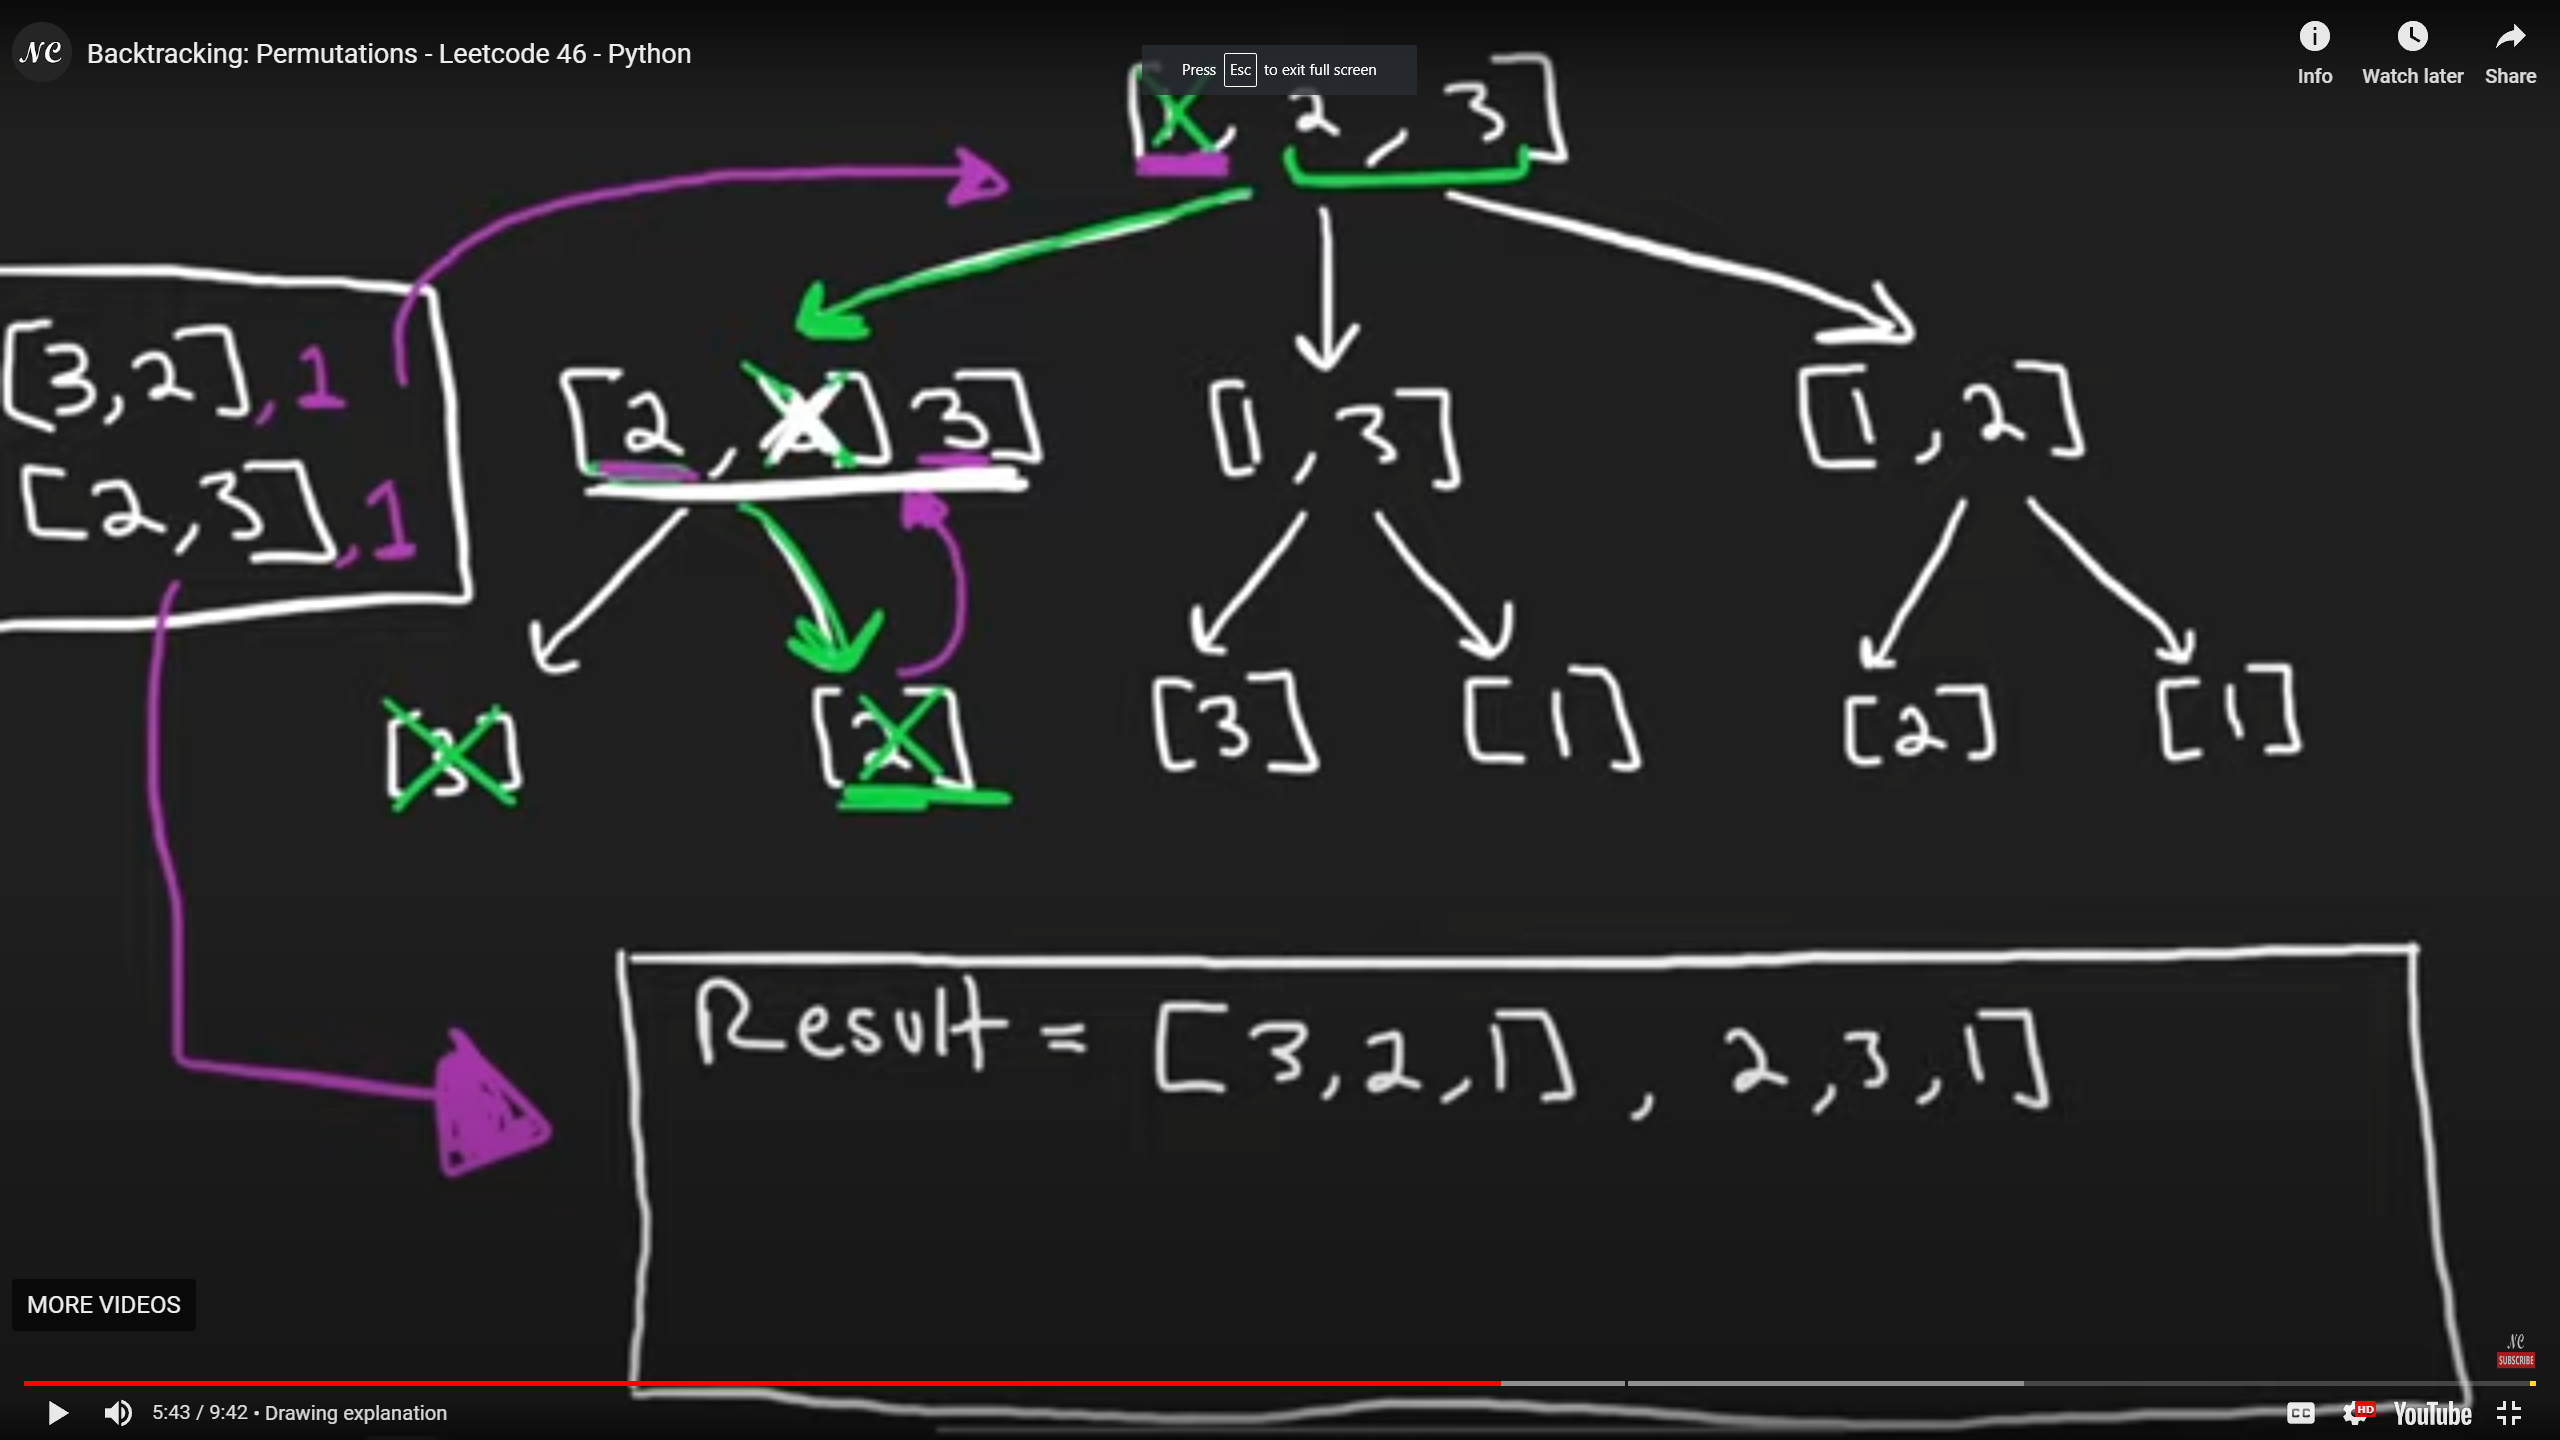 NC Backtracking: Permutations - Leetcode 46 - Python
Press Esc to exit full screen
Info Watch later Share
[1, 2, 3]
[3,2],1
[2,3],1
[2, ] 3]
[1, 3]
[1, 2]
[3]
[2]
[3]
[1]
[2]
[1]
Result = [3,2,1], 2,3,1]
MORE VIDEOS
NC
SUBSCRIBE
5:43 / 9:42 • Drawing explanation
CC HD YouTube